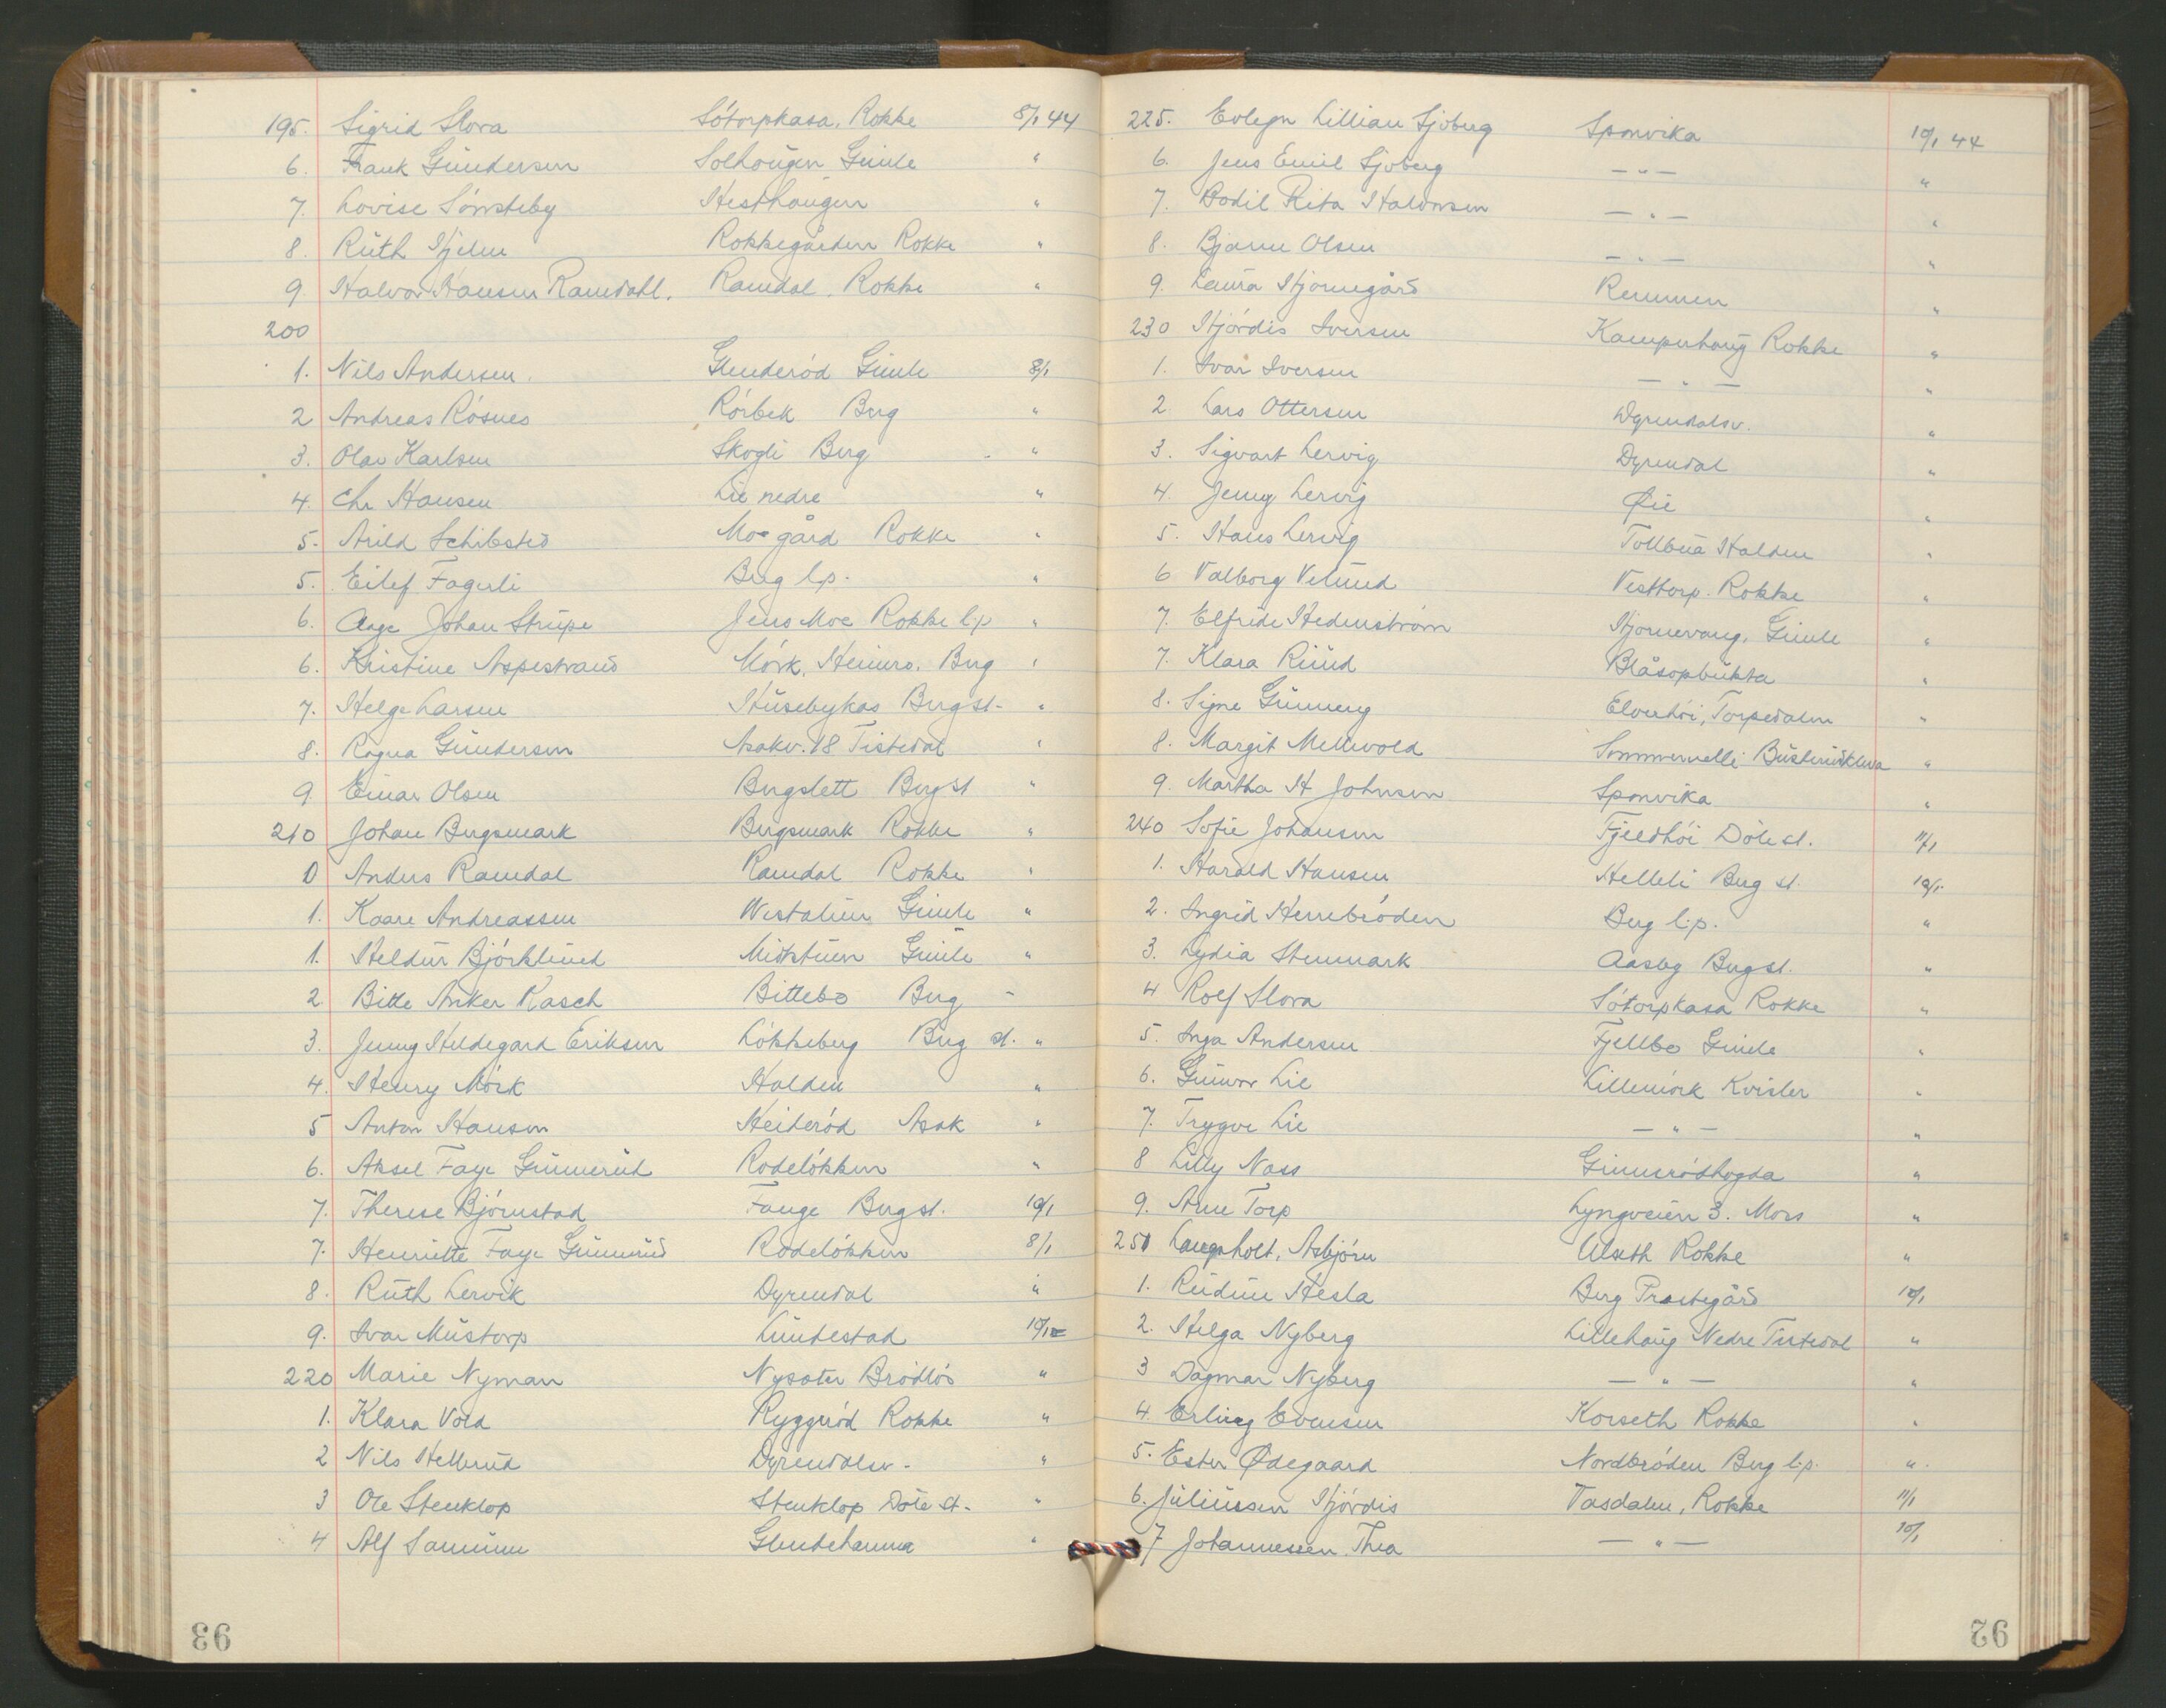 195. Sigrid Slora Sótorpkasa, Rokke 8/1 44
6. Frank Gündersen Solhaugen Gimle "
7. Lovise Sómsteby Hesthaugen "
8. Rüth Hjelm Rokkegården Rokke "
9. Halvor Hansen Ramdahl. Ramdal. Rokke "
200
1. Nils Andersen. Glenderód Gimle 8/1
2 Andreas Rósnes Rórbek Berg "
3. Olav Karlsen Skogli Berg "
4. Chr Hansen Lie nedre "
5. Arild Schibsted Moe gård Rokke "
5. Eilef Fagerli Berg l.p. "
6. Aage Johan Strüpe Jens Moe Rokke l.p "
6. Kristine Aspestrand Mórk, Heimro. Berg "
7. Helge Larsen Hüsebykas Berg st. "
8. Ragna Gündersen Asakv. 18 Tistedal "
9. Einar Olsen Bergslett Berg st "
210 Johan Bergsmark Bergsmark Rokke "
0 Anders Ramdal Ramdal Rokke "
1. Kaare Andreassen Westalün Gimle "
1. Heldür Bjórklünd Midtstüen Gimle "
2. Bitte Anker Rasch Bittebo Berg "
3. Jenny Hildegard Eriksen Lókkeberg Berg st. "
4. Henry Mórk Halden "
5 Anton Hansen Heideród Asak "
6. Aksel Faye Günnerüd Rodelókken "
7. Therese Bjórnstad Fange Berg st. 10/1
7. Henriette Faye Günnerüd Rodelókken 8/1
8. Rüth Lervik Dyrendal "
9. Ivar Müstorp Lündestad 10/1
220 Marie Nyman Nysater Bródlós "
1. Klara Vold Ryggeród Rokke "
2 Nils Hellerüd Dyrendalsv. "
3 Ole Stenklop Stenklop Dóle st. "
4 Alf Samüen Glendehamna "
93
225. Evlegn Lillian Sjóberg Sponvika 10/1 44
6. Jens Emil Sjóberg — " — "
7. Bodil Rita Halvorsen — " — "
8. Bjarne Olsen — " — "
9. Laüra Hjornegård Remmen "
230 Hjórdis Iversen Kamperhaüg Rokke "
1. Ivar Iversen — " — "
2. Lars Ottersen Dyrendalsv. "
3. Sigvart Lervig Dyrendal "
4. Jenny Lervig Øie "
5. Hans Lervig Tollbüa Halden "
6 Valborg Velünd Vesttorp. Rokke "
7. Elfride Hedenstróm Hjornevang, Gimle "
7. Klara Rüüd Blåsopbükta "
8. Signe Günneng Elverhói, Torpedalen "
8. Margit Mellevold Sommervelli "
9. Martha H Johnsen Sponvika "
240 Sofie Johansen Fjeldhói Dóle st. 11/1
1. Harald Hansen Helleli Berg st. 10/1
2. Ingrid Herrebróden Berg l.p. "
3. Lydia Stenmark Aasby Berg st. "
4 Rolf Slora Sótorpkasa Rokke "
5. Inga Andersen Fjellbo Gimle "
6. Günvor Lie Lillemórk Kvisler "
7. Trygve Lie — " — "
8 Lilly Nass Gimseródhogda "
9. Arne Torp Lyngveien 3. Moss "
250 Langholt, Asbjórn Ulseth Rokke "
1. Reidün Hesla Berg Prostegård 10/1
2. Helga Nyberg Lillehaüg Nedre Tistedal "
3 Dagmar Nyberg — " — "
4. Erling Evensen Korseth Rokke "
5. Ester Ødegaard Nordbróden Berg l.p. "
6. Jüliüssen Hjórdis Vasdalen, Rokke 11/1
7 Johannessen. Thea — " — 10/1
92